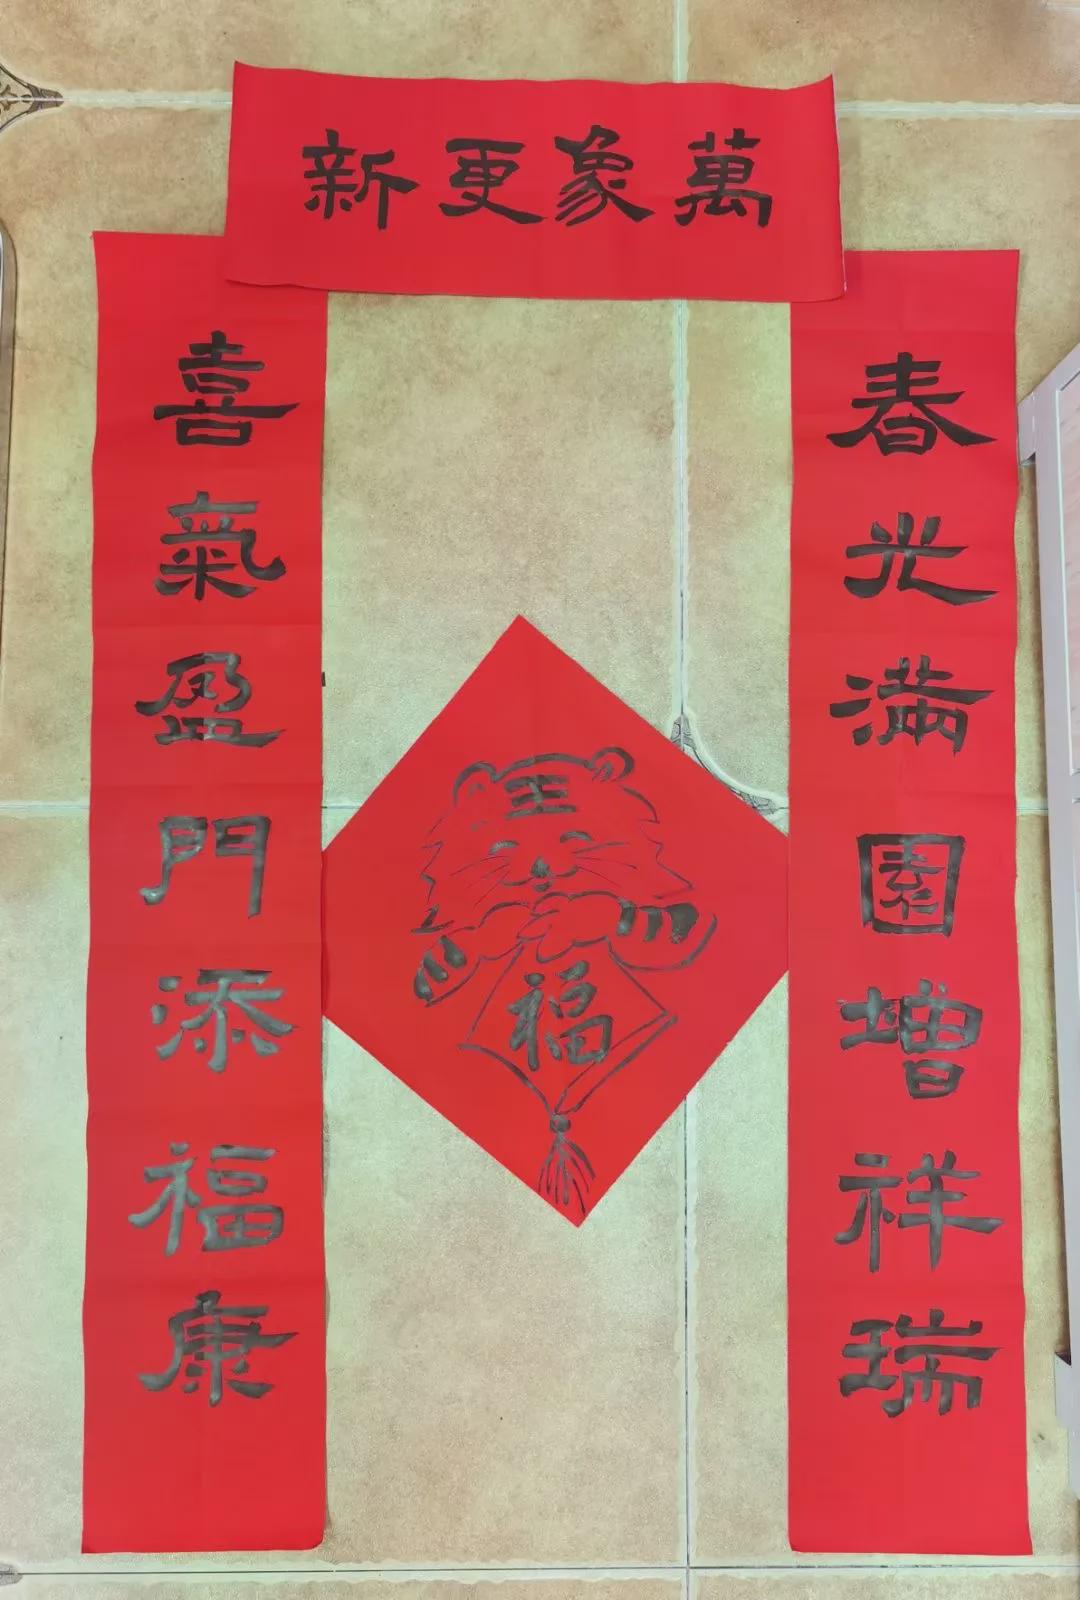 萬象更新
春光滿園增祥瑞
喜氣盈門添福康
王
福